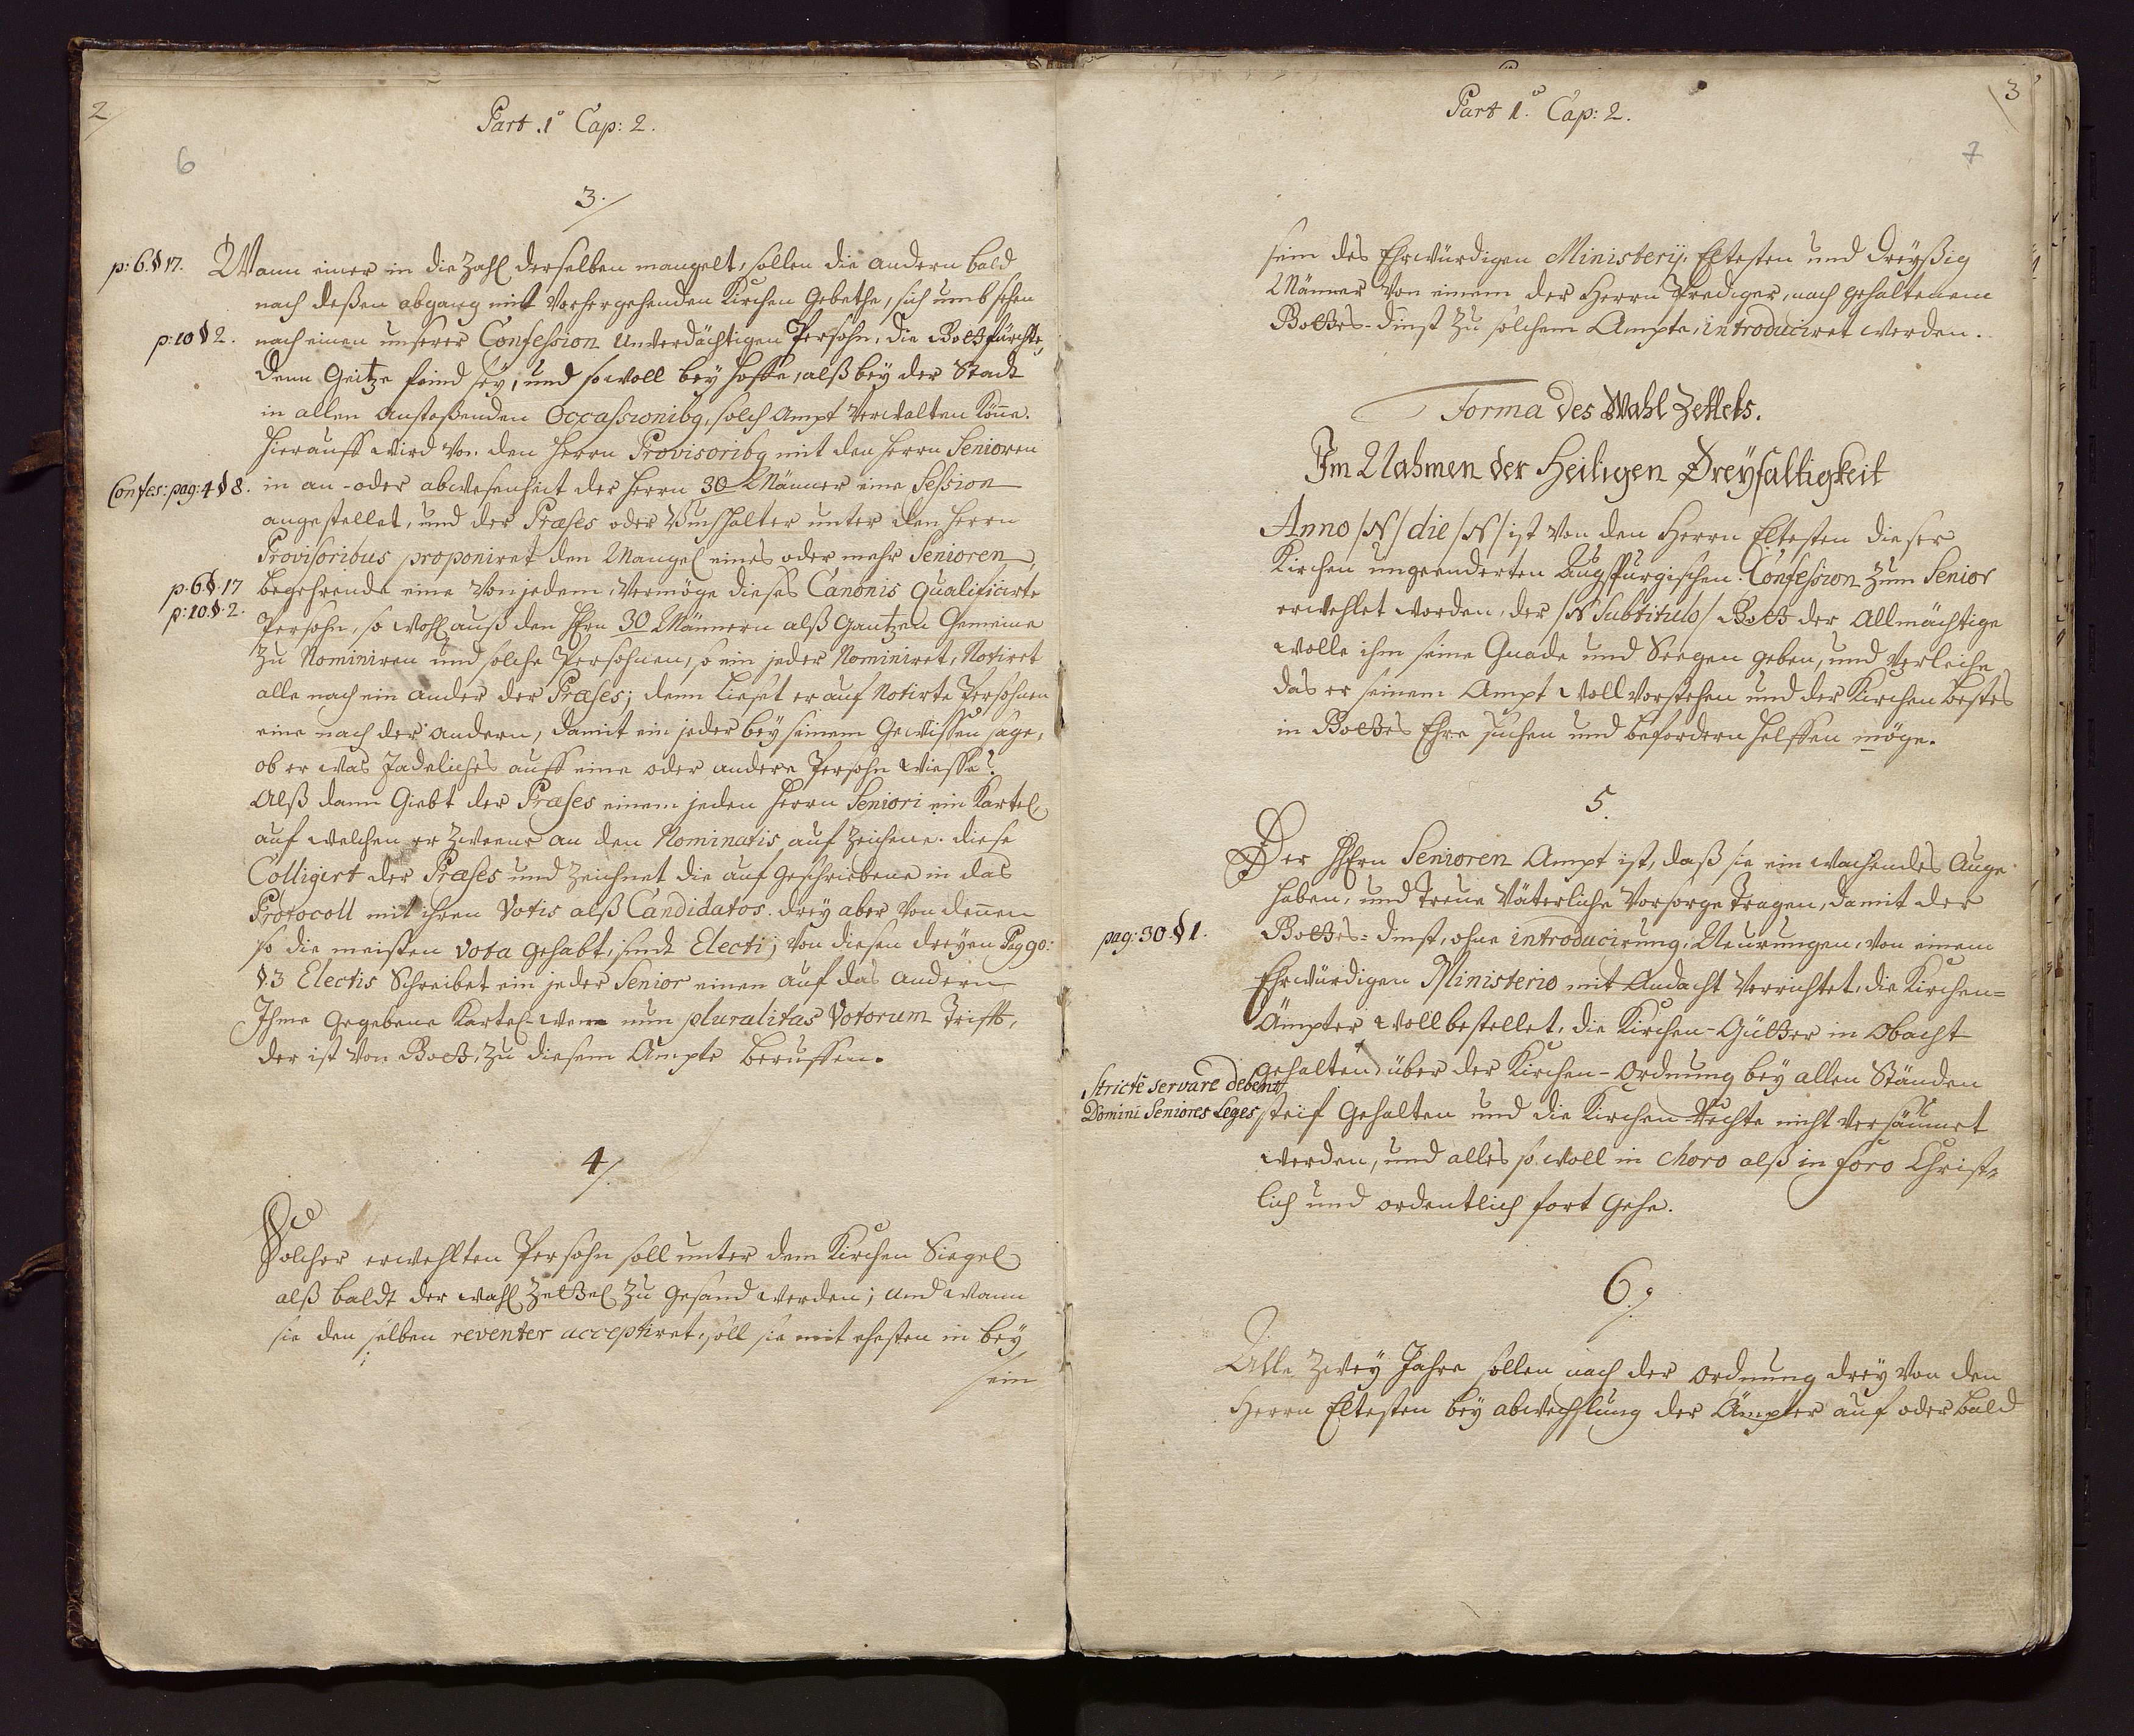 2
Part. 1º Cap: 2.
6
3.
p: 6. § 17.
Wann einer in die Zahl derselben mangelt, sollen die andern bald
nach deßen abgang mit vorhergehenden Kirchen Gebethe, sich umbsehen
p: 10 § 2.
nach einen unserer Confession unverdächtigen Persohn, die Gott fürchte,
denn Geitze feind seÿ, und so woll beÿ Hoffe, alß beÿ der Stadt
in allen anstoßenden Occassionibq, solch Ampt verwalten könne.
Hierauff wird von den Herrn Provisoribq mit den Herrn Senioren
Confes: pag: 4 § 8.
in an- oder abwesenheit der Herrn 30 Männer eine Session
angestellet, und der Præses oder Buchhalter unter den Herrn
Provisoribus proponiret den Mangel eines oder mehr Senioren,
p. 6 §. 17
begehrende eine von jedem, vermöge dieses Canonis qualificirte
p: 10. §. 2.
Persohn, so wohl auß den HErn 30 Männern alß Gantzen Gemeine
zu Nominiren und solche Persohnen, so ein jeder Nominiret, Notiret
alle nach ein ander der Præses; denn lieset er auf Notirte Persohnen
eine nach der andern, damit ein jeder beÿ seinem Gewissen sage,
ob er was Tadeliches auff eine oder andere Persohn wiesse?
Alß dann Giebt der Præses einem jeden Herrn Seniori ein Kartel,
auf welchen er Zweene an den Nominatis auf zeichene. diese
Colligirt der Præses und Zeichnet die auf Geschriebene in das
Protocoll mit ihren Votis alß Candidatos. dreÿ aber von denen
so die meisten Vota Gehabt, sind Electi; von diesen dreÿen Pag 90:
§. 3 Electis Schreibet ein jeder Senior einen auf das andern
Ihme Gegebene Kartel. wenn nun pluralitas Votorum Trifft,
der ist von Gott, zu diesem Ampte beruffen.
4.
Solcher erwehlten Persohn soll unter dem Kirchen Siegel
alß baldt der Wahl Zettel zu Gesand werden; und wann
sie den selben reventer acceptiret, soll sie mit ehesten in beÿ
sein
3
Part 1º. Cap: 2.
7
sein des Ehrwürdigen Ministerij, Eltesten und Dreÿßig
Männer von einem der Herrn Prediger, nach gehaltenem
Gottes-dinst zu solchem Ampte, introduciret werden.
Forma des Wahl Zettels.
Im Nahmen der Heiligen Dreyfaltigkeit
Anno /N/ die /N/ ist von den Herrn Eltesten dieser
Kirchen ungeenderten Augspurgischen Confession zum Senior
erwehlet worden, der /N Subtitulo/ Gott der Allmächtige
wolle ihm seine Gnade und Seegen geben, und verleihe
das er seinem Ampt woll vorstehen und der Kirchen bestes
in Gottes Ehre suchen und befordern helffen möge.
5.
Der HErn Senioren Ampt ist, daß sie ein wachendes Auge
haben, und treue Väterliche Vorsorge Tragen, damit der
pag: 30. § 1.
Gottes=dinst, ohne introducirung, Neurungen, von einem
Ehrwürdigen Ministerio mit Andacht verrichtet, die Kirchen=
Ämpter woll bestellet, die Kirchen-Gütter in Obacht
Stricte servare debent
gehalten, über der Kirchen-Ordnung beÿ allen Ständen
Domini Seniores Leges
steif Gehalten und die Kirchen-Rechte nicht versäumet
werden, und alles so woll in choro alß in foro Christ=
lich und ordentlich fort Gehe.
6.
Alle zweÿ Jahre sollen nach der ordnung dreÿ von den
Herrn Eltesten beÿ abwechslung der Ämpter auf oder bald